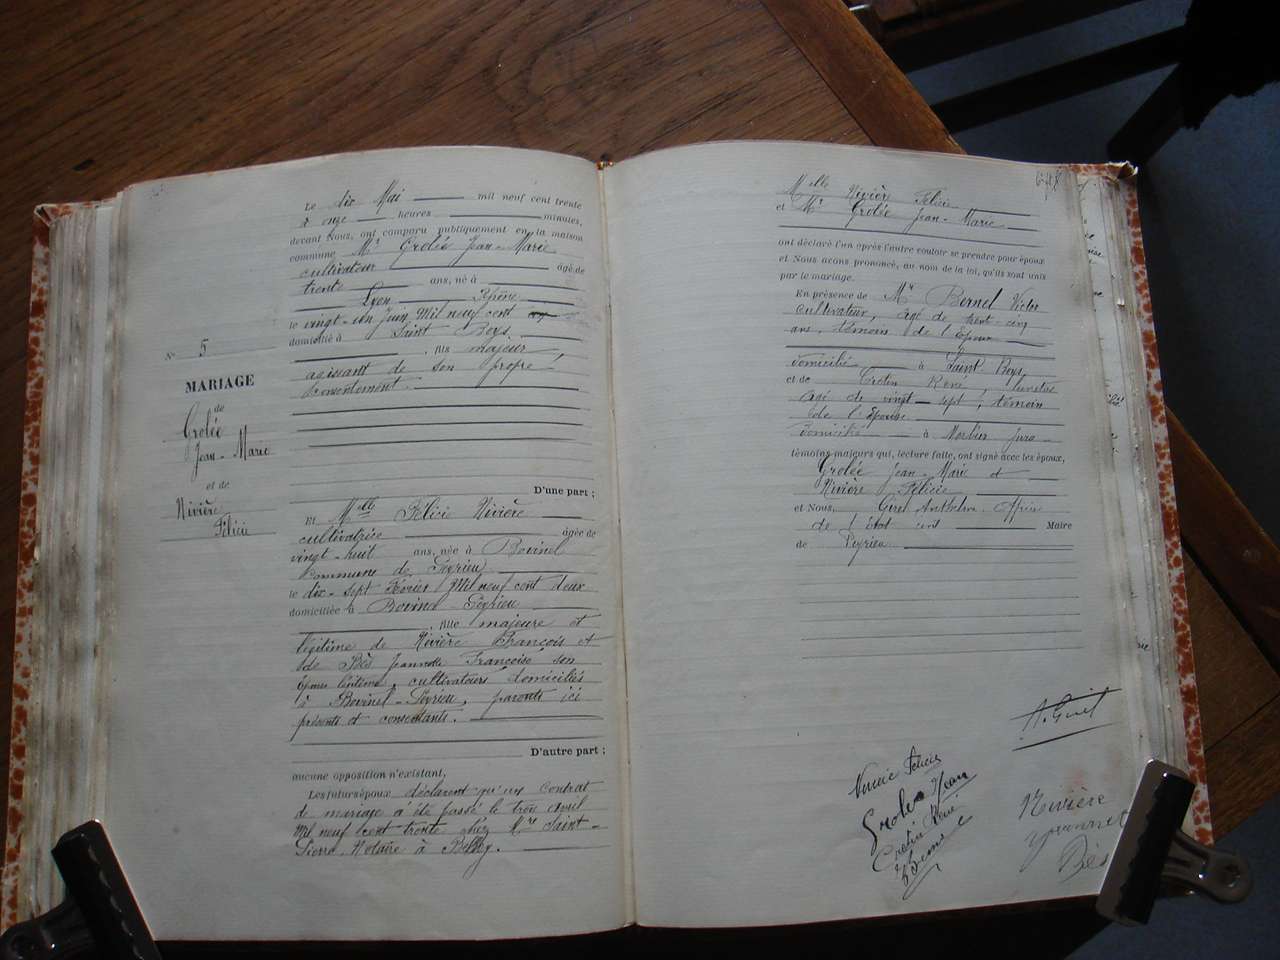 N° 5
MARIAGE
de
Grolée
Jean-Marie
et de
Rivière
Félicie
Le dix Mai mil neuf cent trente
à onze heures minutes,
devant Nous, ont comparu publiquement en la maison
commune Mr Grolée Jean-Marie
cultivateur âgé de
trente ans, né à
Lyon Rhône
le vingt-un Juin Mil neuf cent
domicilié à Saint Boys
, fils majeur
agissant de son propre
consentement.
D'une part ;
Et Melle Félicie Rivière
cultivatrice âgée de
vingt-huit ans, née à Bovinel
Commune de Peyrieu
le dix-sept Février Mil neuf cent deux
domiciliée à Bovinel-Peyrieu
, fille majeure et
légitime de Rivière François et
de Bès Jeannette Françoise son
épouse légitime, cultivateurs domiciliés
à Bovinel-Peyrieu, parents ici
présents et consentants.
D'autre part ;
aucune opposition n'existant,
Les futurs époux déclarent qu'un contrat
de mariage a été passé le trois avril
Mil neuf cent trente chez Mre Saint-
Pierre Notaire à Belley.
648
Melle Rivière Félicie
et Mr Grolée Jean-Marie
ont déclaré l'un après l'autre vouloir se prendre pour époux
et Nous avons prononcé, au nom de la loi, qu'ils sont unis
par le mariage.
En présence de Mr Bernel Victor
cultivateur, âgé de trent-cinq
ans, témoin de l'Epoux
domicilié à Saint Boys
et de Cretin René, lunetier
âgé de vingt-sept, témoin
de l'Epouse
domicilié à Morbier Jura
témoins majeurs qui, lecture faite, ont signé avec les époux,
Grolée Jean-Marie et
Rivière Félicie
et Nous, Giret Anthelme Officier
de l'état civil Maire
de Peyrieu
A. Giret
Rivière Félicie
Grolée Jean
Cretin René
Rivière
Bès